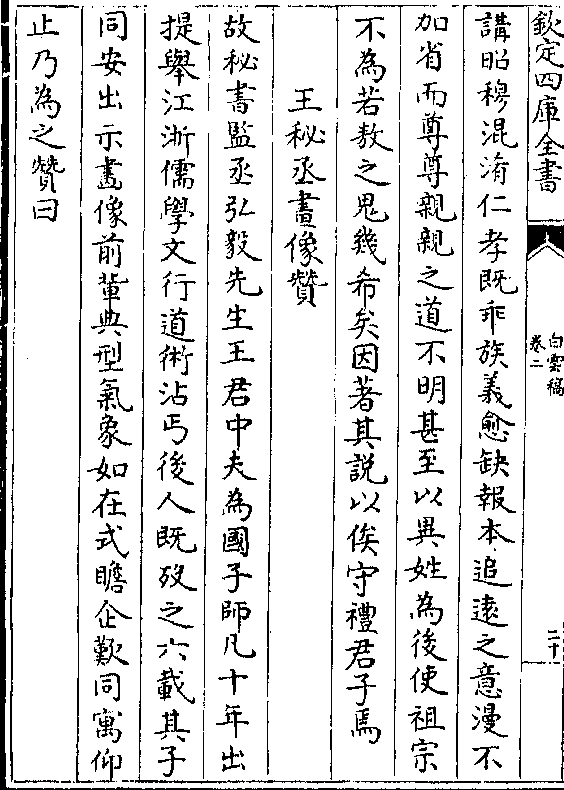 欽定四庫全書
白雲稿
卷二
二十
講昭穆混淆仁孝既乖族義愈缺報本追逺之意漫不
加省而尊尊親親之道不明甚至以異姓為後使祖宗
不為若敖之鬼幾希矣因著其説以俟守禮君子焉
王秘丞畫像贊
故秘書監丞弘毅先生王君中夫為國子師凡十年出
提舉江浙儒學文行道術沾丐後人既歿之六載其子
同安出示畵像前軰典型氣象如在式瞻企歎同寓仰
止乃為之贊曰